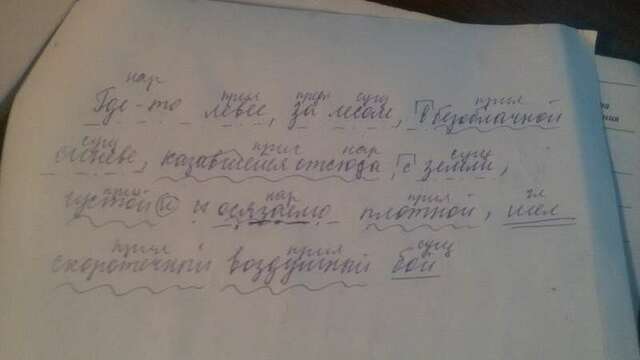 нар
прил предл сущ прил
Где-то левее, за лесом, в безоблачной
сущ прич нар сущ
синеве, казавшейся отсюда, с земли,
прил нар прил гл
густой и и осязаемо плотной, шел
прил прил сущ
скоротечный воздушный бой